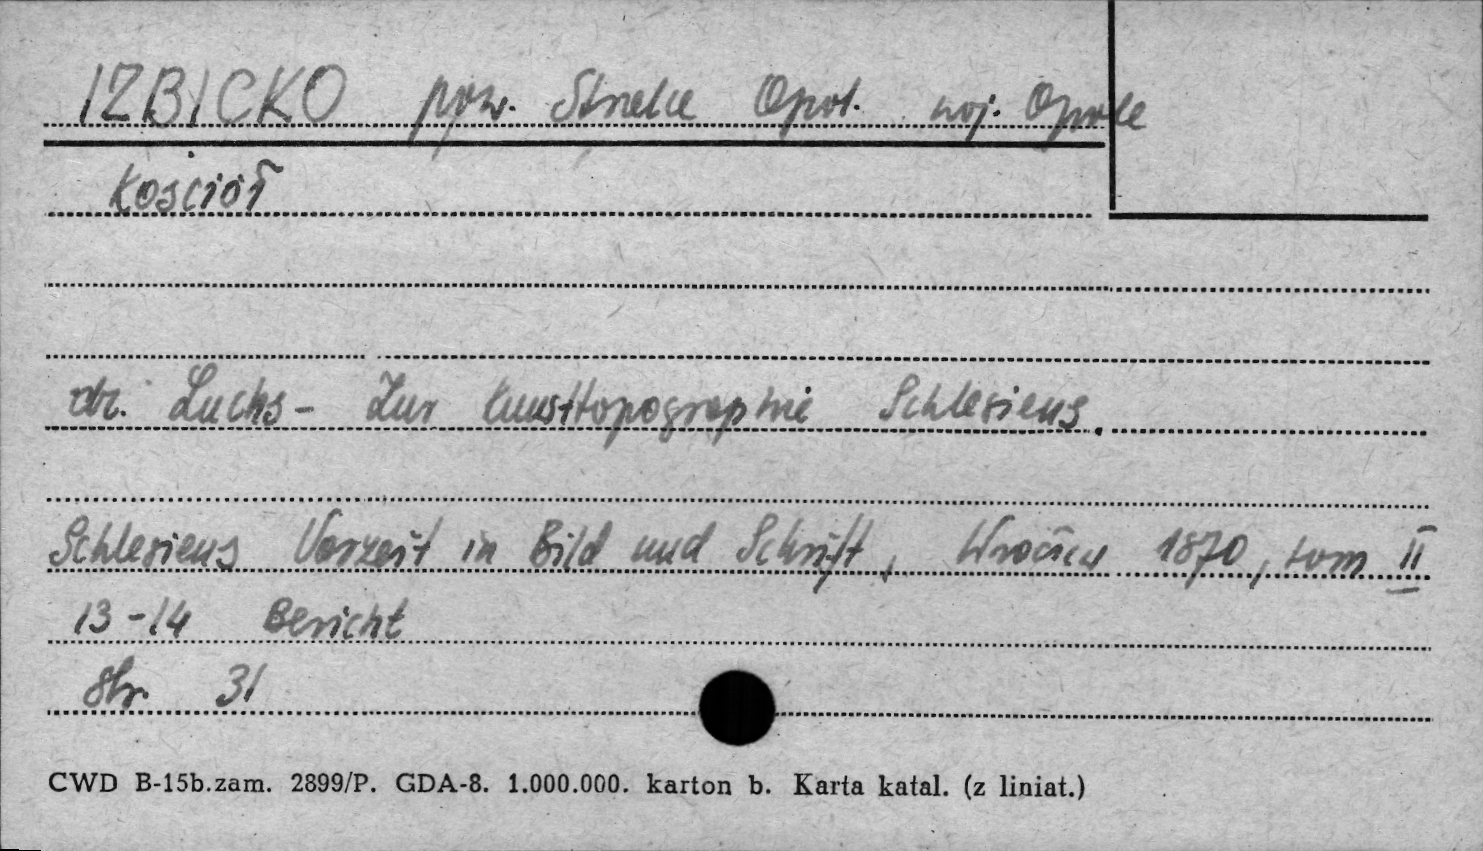 IZBICKO pow. Strzelce Opol. woj. Opole
Kościół
dr. Luchs - Zur Kunsttopographie Schlesiens.
Schlesiens Vorzeit in Bild und Schrift, Wrocław 1870, tom II
13-14 Bericht
str. 31
CWD B-15b.zam. 2899/P. GDA-8. 1.000.000. karton b. Karta katal. (z liniat.)